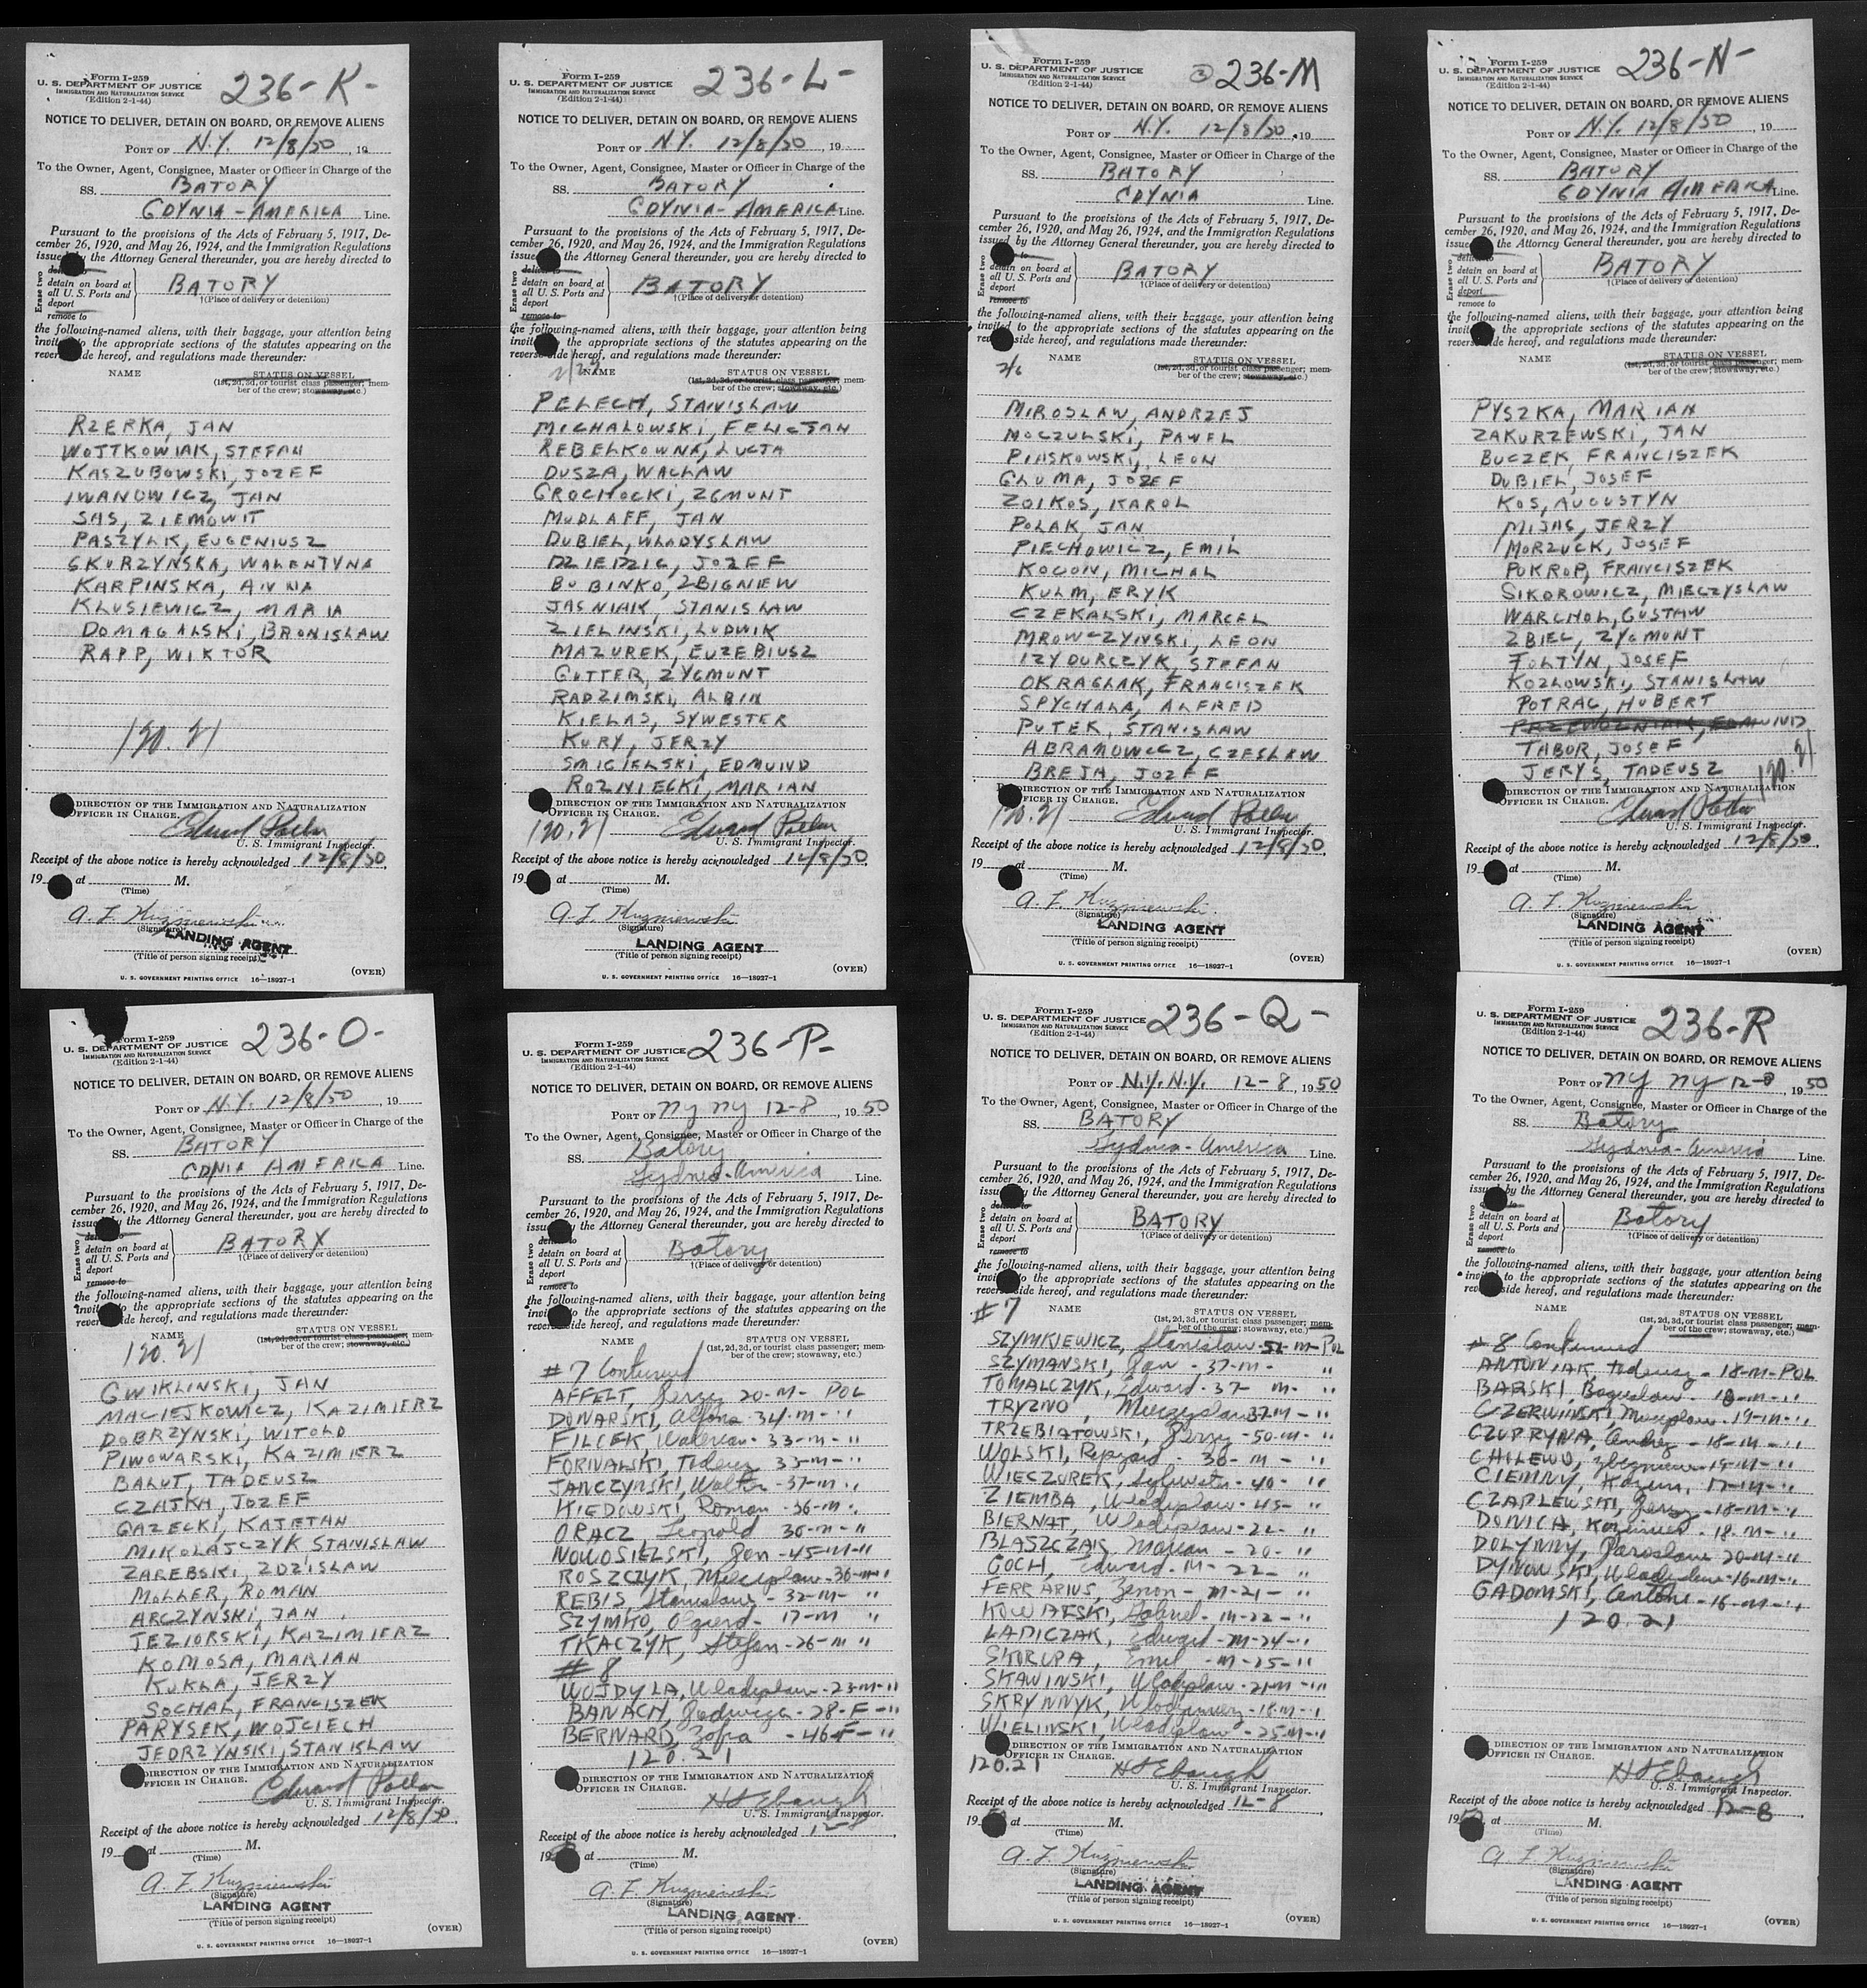 Form I-259
U. S. DEPARTMENT OF JUSTICE
IMMIGRATION AND NATURALIZATION SERVICE
(Edition 2-1-44)
236-K-
NOTICE TO DELIVER, DETAIN ON BOARD, OR REMOVE ALIENS
PORT OF N.Y. 12/8/50, 19
To the Owner, Agent, Consignee, Master or Officer in Charge of the
SS. BATORY
GDYNIA-AMERICA Line.
Pursuant to the provisions of the Acts of February 5, 1917, De-
cember 26, 1920, and May 26, 1924, and the Immigration Regulations
issued by the Attorney General thereunder, you are hereby directed to
Erase two
deliver to
detain on board at
all U. S. Ports and
deport
remove to
BATORY
†(Place of delivery or detention)
the following-named aliens, with their baggage, your attention being
invited to the appropriate sections of the statutes appearing on the
reverse side hereof, and regulations made thereunder:
NAME STATUS ON VESSEL
(1st, 2d, 3d, or tourist class passenger; mem-
ber of the crew; stowaway, etc.)
RZERKA, JAN
WOJTKOWIAK, STEFAN
KASZUBOWSKI, JOZEF
IWANOWICZ, JAN
SAS, ZIEMOWIT
PASZYLK, EUGENIUSZ
SKURZYNSKA, WALENTYNA
KARPINSKA, ANNA
KLUSIEWICZ, MARIA
DOMAGALSKI, BRONISLAW
RAPP, WIKTOR
120.21
DIRECTION OF THE IMMIGRATION AND NATURALIZATION
OFFICER IN CHARGE.
U. S. Immigrant Inspector.
Receipt of the above notice is hereby acknowledged 12/8/50,
19 at M.
(Time)
A. F. Kuzniewski
(Signature)
LANDING AGENT
(Title of person signing receipt)
U. S. GOVERNMENT PRINTING OFFICE 16—18927-1
(OVER)
Form I-259
U. S. DEPARTMENT OF JUSTICE
IMMIGRATION AND NATURALIZATION SERVICE
(Edition 2-1-44)
236-L-
NOTICE TO DELIVER, DETAIN ON BOARD, OR REMOVE ALIENS
PORT OF N.Y. 12/8/50, 19
To the Owner, Agent, Consignee, Master or Officer in Charge of the
SS. BATORY
GDYNIA-AMERICA Line.
Pursuant to the provisions of the Acts of February 5, 1917, De-
cember 26, 1920, and May 26, 1924, and the Immigration Regulations
issued by the Attorney General thereunder, you are hereby directed to
Erase two
deliver to
detain on board at
all U. S. Ports and
deport
remove to
BATORY
†(Place of delivery or detention)
the following-named aliens, with their baggage, your attention being
invited to the appropriate sections of the statutes appearing on the
reverse side hereof, and regulations made thereunder:
NAME STATUS ON VESSEL
(1st, 2d, 3d, or tourist class passenger; mem-
ber of the crew; stowaway, etc.)
PELECH, STANISLAW
MICHALOWSKI, FELICJAN
REBELKOWNA, LUCJA
DUSZA, WACLAW
GROCHOCKI, ZGMUNT
MUDLAFF, JAN
DUBIEL, WLADYSLAW
DZIEDZIC, JOZEF
BUBINKO, ZBIGNIEW
JASNIAK, STANISLAW
ZIELINSKI, LUDWIK
MAZUREK, EUZEBIUSZ
GUTTER, ZYGMUNT
RADZIMSKI, ALBIN
KIELAS, SYWESTER
KURY, JERZY
SMIGIELSKI, EDMUND
ROZNIECKI, MARIAN
DIRECTION OF THE IMMIGRATION AND NATURALIZATION
OFFICER IN CHARGE.
120.21
U. S. Immigrant Inspector.
Receipt of the above notice is hereby acknowledged 12/8/50,
19 at M.
(Time)
A. F. Kuzniewski
(Signature)
LANDING AGENT
(Title of person signing receipt)
U. S. GOVERNMENT PRINTING OFFICE 16—18927-1
(OVER)
Form I-259
U. S. DEPARTMENT OF JUSTICE
IMMIGRATION AND NATURALIZATION SERVICE
(Edition 2-1-44)
236-M
NOTICE TO DELIVER, DETAIN ON BOARD, OR REMOVE ALIENS
PORT OF N.Y. 12/8/50, 19
To the Owner, Agent, Consignee, Master or Officer in Charge of the
SS. BATORY
GDYNIA Line.
Pursuant to the provisions of the Acts of February 5, 1917, De-
cember 26, 1920, and May 26, 1924, and the Immigration Regulations
issued by the Attorney General thereunder, you are hereby directed to
detain on board at
all U. S. Ports and
deport
remove to
BATORY
†(Place of delivery or detention)
the following-named aliens, with their baggage, your attention being
invited to the appropriate sections of the statutes appearing on the
reverse side hereof, and regulations made thereunder:
NAME STATUS ON VESSEL
(1st, 2d, 3d, or tourist class passenger; mem-
ber of the crew; stowaway, etc.)
MIROSLAW, ANDRZEJ
MOCZULSKI, PAWEL
PIASKOWSKI, LEON
GLUMA, JOZEF
ZOIKOS, KAROL
POLAK, JAN
PIECHOWICZ, EMIL
KOGON, MICHAL
KULM, ERYK
CZEKALSKI, MARCEL
MROWCZYNSKI, LEON
IZYDORCZYK, STEFAN
OKRAGLAK, FRANCISZEK
SPYCHALA, ALFRED
PUTEK, STANISLAW
ABRAMOWICZ, CZESLAW
BREJA, JOZEF
DIRECTION OF THE IMMIGRATION AND NATURALIZATION
OFFICER IN CHARGE.
120.21
U. S. Immigrant Inspector.
Receipt of the above notice is hereby acknowledged 12/8/50,
19 at M.
(Time)
A. F. Kuzniewski
(Signature)
LANDING AGENT
(Title of person signing receipt)
U. S. GOVERNMENT PRINTING OFFICE 16—18927-1
(OVER)
Form I-259
U. S. DEPARTMENT OF JUSTICE
IMMIGRATION AND NATURALIZATION SERVICE
(Edition 2-1-44)
236-N-
NOTICE TO DELIVER, DETAIN ON BOARD, OR REMOVE ALIENS
PORT OF N.Y. 12/8/50, 19
To the Owner, Agent, Consignee, Master or Officer in Charge of the
SS. BATORY
GDYNIA AMERICA Line.
Pursuant to the provisions of the Acts of February 5, 1917, De-
cember 26, 1920, and May 26, 1924, and the Immigration Regulations
issued by the Attorney General thereunder, you are hereby directed to
Erase two
deliver to
detain on board at
all U. S. Ports and
deport
remove to
BATORY
†(Place of delivery or detention)
the following-named aliens, with their baggage, your attention being
invited to the appropriate sections of the statutes appearing on the
reverse side hereof, and regulations made thereunder:
NAME STATUS ON VESSEL
(1st, 2d, 3d, or tourist class passenger; mem-
ber of the crew; stowaway, etc.)
PYSZKA, MARIAN
ZAKURZEWSKI, JAN
BUCZEK, FRANCISZEK
DUBIEL, JOSEF
KOS, AUGUSTYN
MIJAS, JERZY
MORZUCK, JOSEF
POKROP, FRANCISZEK
SIKOROWICZ, MIECZYSLAW
WARCHOL, GUSTAW
ZBIEC, ZYGMONT
FOLTYN, JOSEF
KOZLOWSKI, STANISLAW
POTRAC, HUBERT
PRZEWOZNIAK, EDMUND
TABOR, JOSEF
JERYS, TADEUSZ
120.21
DIRECTION OF THE IMMIGRATION AND NATURALIZATION
OFFICER IN CHARGE.
U. S. Immigrant Inspector.
Receipt of the above notice is hereby acknowledged 12/8/50,
19 at M.
(Time)
A. F. Kuzniewski
(Signature)
LANDING AGENT
(Title of person signing receipt)
U. S. GOVERNMENT PRINTING OFFICE 16—18927-1
(OVER)
Form I-259
U. S. DEPARTMENT OF JUSTICE
IMMIGRATION AND NATURALIZATION SERVICE
(Edition 2-1-44)
236-O-
NOTICE TO DELIVER, DETAIN ON BOARD, OR REMOVE ALIENS
PORT OF N.Y. 12/8/50, 19
To the Owner, Agent, Consignee, Master or Officer in Charge of the
SS. BATORY
GDNIA AMERICA Line.
Pursuant to the provisions of the Acts of February 5, 1917, De-
cember 26, 1920, and May 26, 1924, and the Immigration Regulations
issued by the Attorney General thereunder, you are hereby directed to
Erase two
deliver to
detain on board at
all U. S. Ports and
deport
remove to
BATORY
†(Place of delivery or detention)
the following-named aliens, with their baggage, your attention being
invited to the appropriate sections of the statutes appearing on the
reverse side hereof, and regulations made thereunder:
NAME STATUS ON VESSEL
(1st, 2d, 3d, or tourist class passenger; mem-
ber of the crew; stowaway, etc.)
120.21
GWIKLINSKI, JAN
MACIEJKOWICZ, KAZIMIERZ
DOBRZYNSKI, WITOLD
PIWOWARSKI, KAZIMIERZ
BALUT, TADEUSZ
CZAJKA, JOZEF
GAZECKI, KAJETAN
MIKOLAJCZYK STANISLAW
ZAREBSKI, ZDZISLAW
MOLLER, ROMAN
ARCZYNSKI, JAN
JEZIORSKI, KAZIMIERZ
KOMOSA, MARIAN
KUKLA, JERZY
SOCHAL, FRANCISZEK
PARYSEK, WOJCIECH
JEDRZYNSKI, STANISLAW
DIRECTION OF THE IMMIGRATION AND NATURALIZATION
OFFICER IN CHARGE.
U. S. Immigrant Inspector.
Receipt of the above notice is hereby acknowledged 12/8/50,
19 at M.
(Time)
A. F. Kuzniewski
(Signature)
LANDING AGENT
(Title of person signing receipt)
U. S. GOVERNMENT PRINTING OFFICE 16—18927-1
(OVER)
Form I-259
U. S. DEPARTMENT OF JUSTICE
IMMIGRATION AND NATURALIZATION SERVICE
(Edition 2-1-44)
236-P-
NOTICE TO DELIVER, DETAIN ON BOARD, OR REMOVE ALIENS
PORT OF NY NY 12-8, 1950
To the Owner, Agent, Consignee, Master or Officer in Charge of the
SS. Batory
Gydnia-America Line.
Pursuant to the provisions of the Acts of February 5, 1917, De-
cember 26, 1920, and May 26, 1924, and the Immigration Regulations
issued by the Attorney General thereunder, you are hereby directed to
Erase two
deliver to
detain on board at
all U. S. Ports and
deport
remove to
Batory
†(Place of delivery or detention)
the following-named aliens, with their baggage, your attention being
invited to the appropriate sections of the statutes appearing on the
reverse side hereof, and regulations made thereunder:
NAME STATUS ON VESSEL
(1st, 2d, 3d, or tourist class passenger; mem-
ber of the crew; stowaway, etc.)
# 7 Continued
AFFELT, Jerzy 20-M- POL
DONARSKI, Alfons 34-M-"
FILCEK, Walerian - 33-M-"
FORNALSKI, Tadeusz 33-M-"
JANCZYNSKI, Walter - 37-M-"
KIEDOWSKI, Roman - 36-M-
ORACZ, Leopold 30-M-"
NOWOSIELSKI, Jan - 45-M-"
ROSZCZYK, Mieczyslaw - 36-M-"
REBIS, Stanislaw - 32-M- "
SZYMKO, Olgierd - 17-M "
TKACZYK, Stefan - 26-M "
# 8
WOJDYLA, Wladyslaw - 23-M-"
BANACH, Jadwiga - 28-F-"
BERNARD, Zofia - 46-F-"
120.21
DIRECTION OF THE IMMIGRATION AND NATURALIZATION
OFFICER IN CHARGE.
H S Ebaugh
U. S. Immigrant Inspector.
Receipt of the above notice is hereby acknowledged 12-8,
19 at M.
(Time)
A. F. Kuzniewski
(Signature)
LANDING AGENT
(Title of person signing receipt)
U. S. GOVERNMENT PRINTING OFFICE 16—18927-1
(OVER)
Form I-259
U. S. DEPARTMENT OF JUSTICE
IMMIGRATION AND NATURALIZATION SERVICE
(Edition 2-1-44)
236-Q-
NOTICE TO DELIVER, DETAIN ON BOARD, OR REMOVE ALIENS
PORT OF N.Y. N.Y. 12-8, 1950
To the Owner, Agent, Consignee, Master or Officer in Charge of the
SS. BATORY
Gydnia-America Line.
Pursuant to the provisions of the Acts of February 5, 1917, De-
cember 26, 1920, and May 26, 1924, and the Immigration Regulations
issued by the Attorney General thereunder, you are hereby directed to
Erase two
deliver to
detain on board at
all U. S. Ports and
deport
remove to
BATORY
†(Place of delivery or detention)
the following-named aliens, with their baggage, your attention being
invited to the appropriate sections of the statutes appearing on the
reverse side hereof, and regulations made thereunder:
# 7
NAME STATUS ON VESSEL
(1st, 2d, 3d, or tourist class passenger; mem-
ber of the crew; stowaway, etc.)
SZYMKIEWICZ, Stanislaw - 51-M-POL
SZYMANSKI, Jan - 37-M- "
TOMALCZYK, Edward - 37- M- "
TRYZNO, Mieczyslaw 37-M- "
TRZEBIATOWSKI, Jerzy - 50-M- "
WOLSKI, Ryszard - 30-M- "
WIECZOREK, Sylwester - 40- "
ZIEMBA, Wladyslaw - 43- "
BIERNAT, Wladyslaw - 22- "
BLASZCZAK, Marian - 20- "
GOCH, Edward - M-22- "
FERRARIUS, Zenon - M-21- "
KOWALSKI, Gabriel - M-22- "
LADICZAK, Edward - M-24-"
SKORUPA, Emil - M-25-"
SKAWINSKI, Wladyslaw - 21-M-"
SKRYNNYK, Wlodzimierz - 18-M-"
WIELINSKI, Wladyslaw - 25-M-"
DIRECTION OF THE IMMIGRATION AND NATURALIZATION
OFFICER IN CHARGE.
120.21
H S Ebaugh
U. S. Immigrant Inspector.
Receipt of the above notice is hereby acknowledged 12-8,
19 at M.
(Time)
A. F. Kuzniewski
(Signature)
LANDING AGENT
(Title of person signing receipt)
U. S. GOVERNMENT PRINTING OFFICE 16—18927-1
(OVER)
Form I-259
U. S. DEPARTMENT OF JUSTICE
IMMIGRATION AND NATURALIZATION SERVICE
(Edition 2-1-44)
236-R
NOTICE TO DELIVER, DETAIN ON BOARD, OR REMOVE ALIENS
PORT OF NY NY 12-8 1950
To the Owner, Agent, Consignee, Master or Officer in Charge of the
SS. Batory
Gydnia-America Line.
Pursuant to the provisions of the Acts of February 5, 1917, De-
cember 26, 1920, and May 26, 1924, and the Immigration Regulations
issued by the Attorney General thereunder, you are hereby directed to
Erase two
deliver to
detain on board at
all U. S. Ports and
deport
remove to
Batory
†(Place of delivery or detention)
the following-named aliens, with their baggage, your attention being
invited to the appropriate sections of the statutes appearing on the
reverse side hereof, and regulations made thereunder:
NAME STATUS ON VESSEL
(1st, 2d, 3d, or tourist class passenger; mem-
ber of the crew; stowaway, etc.)
# 8 Continued
ANTONIAK, Tadeusz - 18-M-POL
BARSKI, Boguslaw - 18-M-"
CZERWINSKI, Mieczyslaw - 19-M-"
CZUPRYNA, Andrzej - 18-M-"
CHILEWO, Zbigniew - 19-M-"
CIEMNY, Kazim. 17-M-"
CZAPLEWSKI, Jerzy - 18-M-"
DONICA, Kazimierz - 18-M-"
DOLYNNY, Jaroslaw 20-M-"
DYNOWSKI, Wladyslaw - 16-M-"
GADOMSKI, Antoni - 16-M-"
120.21
DIRECTION OF THE IMMIGRATION AND NATURALIZATION
OFFICER IN CHARGE.
H S Ebaugh
U. S. Immigrant Inspector.
Receipt of the above notice is hereby acknowledged 12-8,
19 at M.
(Time)
A. F. Kuzniewski
(Signature)
LANDING AGENT
(Title of person signing receipt)
U. S. GOVERNMENT PRINTING OFFICE 16—18927-1
(OVER)